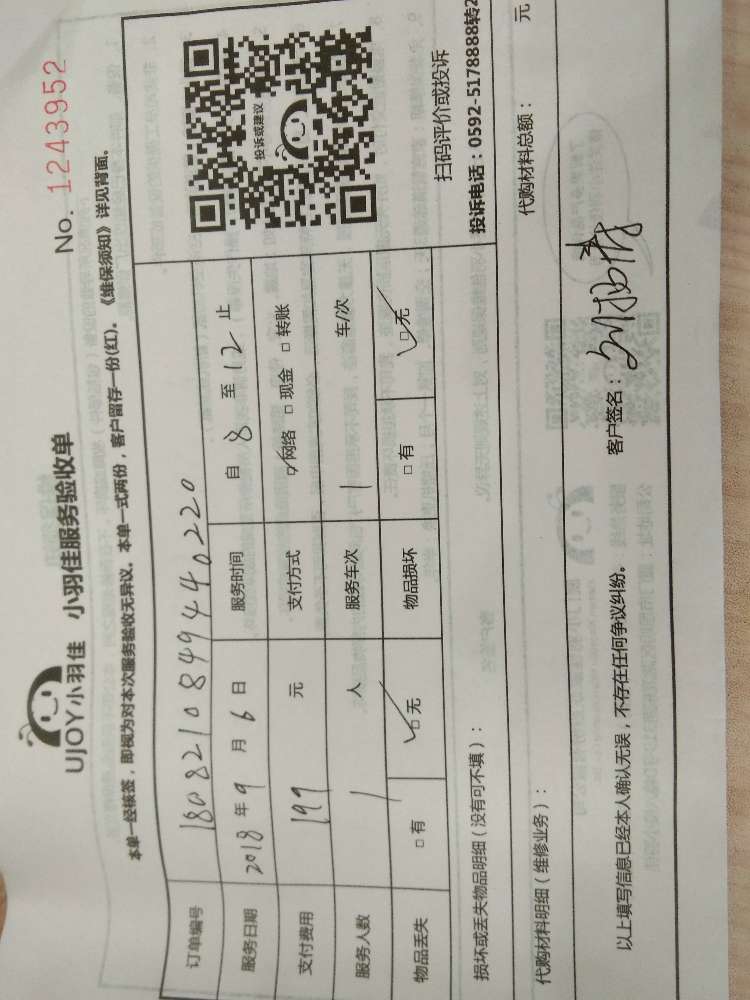 UJOY小羽佳 小羽佳服务验收单
No. 1243952
本单一经核签，即视为对本次服务验收无异议。本单一式两份，客户留存一份(红)。《维保须知》详见背面。
订单编号 1808210849440220
服务日期 2018年9月6日 服务时间 自8至12止
支付费用 199 元 支付方式 ☑网络 □现金 □转账
服务人数 1 人 服务车次 1 车/次
物品丢失 □有 ☑无 物品损坏 □有 ☑无
投诉或建议
扫码评价或投诉
投诉电话：0592-5178888转2
损坏或丢失物品明细（没有可不填）：
代购材料明细（维修业务）： 代购材料总额： 元
以上填写信息已经本人确认无误，不存在任何争议纠纷。 客户签名：